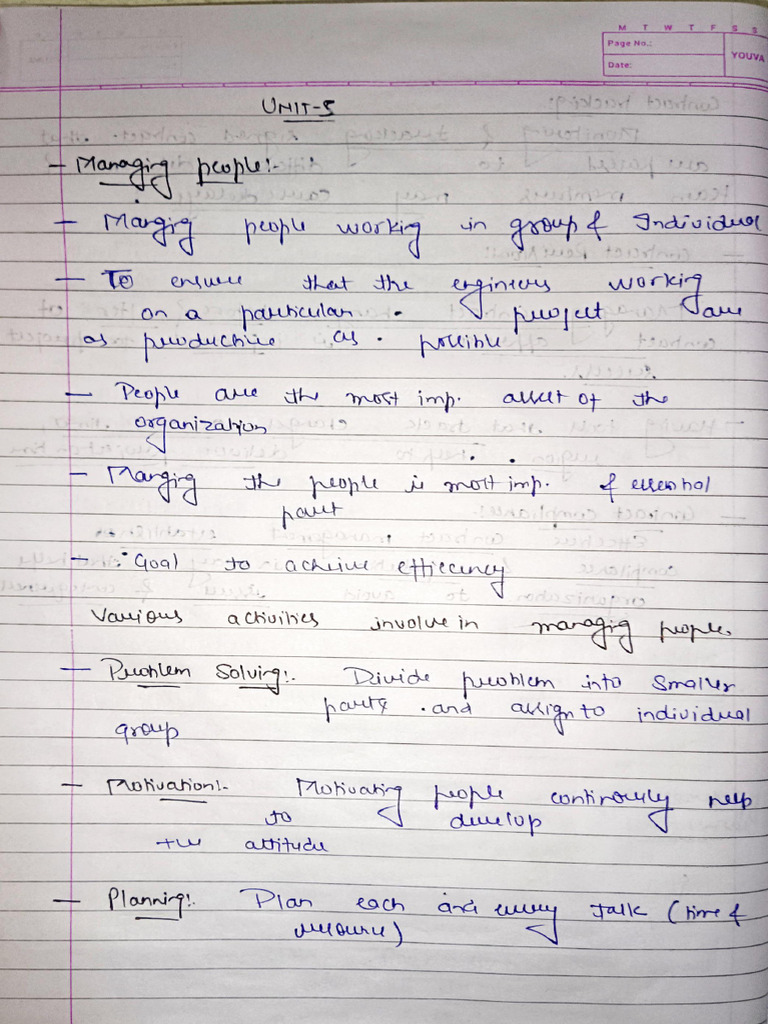 M T W T F S S
Page No.:
Date:
YOUVA
UNIT-5
- Managing people:-
- Manging people working in group & Individual
- To ensure that the engineers working
on a particular project are
as productive as possible
- People are the most imp. asset of the
organization
- Manging the people is most imp. & essential
part
- Goal to achieve efficency
Various activities involve in managing people.
- Problem Solving:- Divide problem into smaller
parts and assign to individual
group
- Motivation:- Motivating people continously help
to develop
+ve attitude
- Planning:- Plan each and every task (time &
resource)